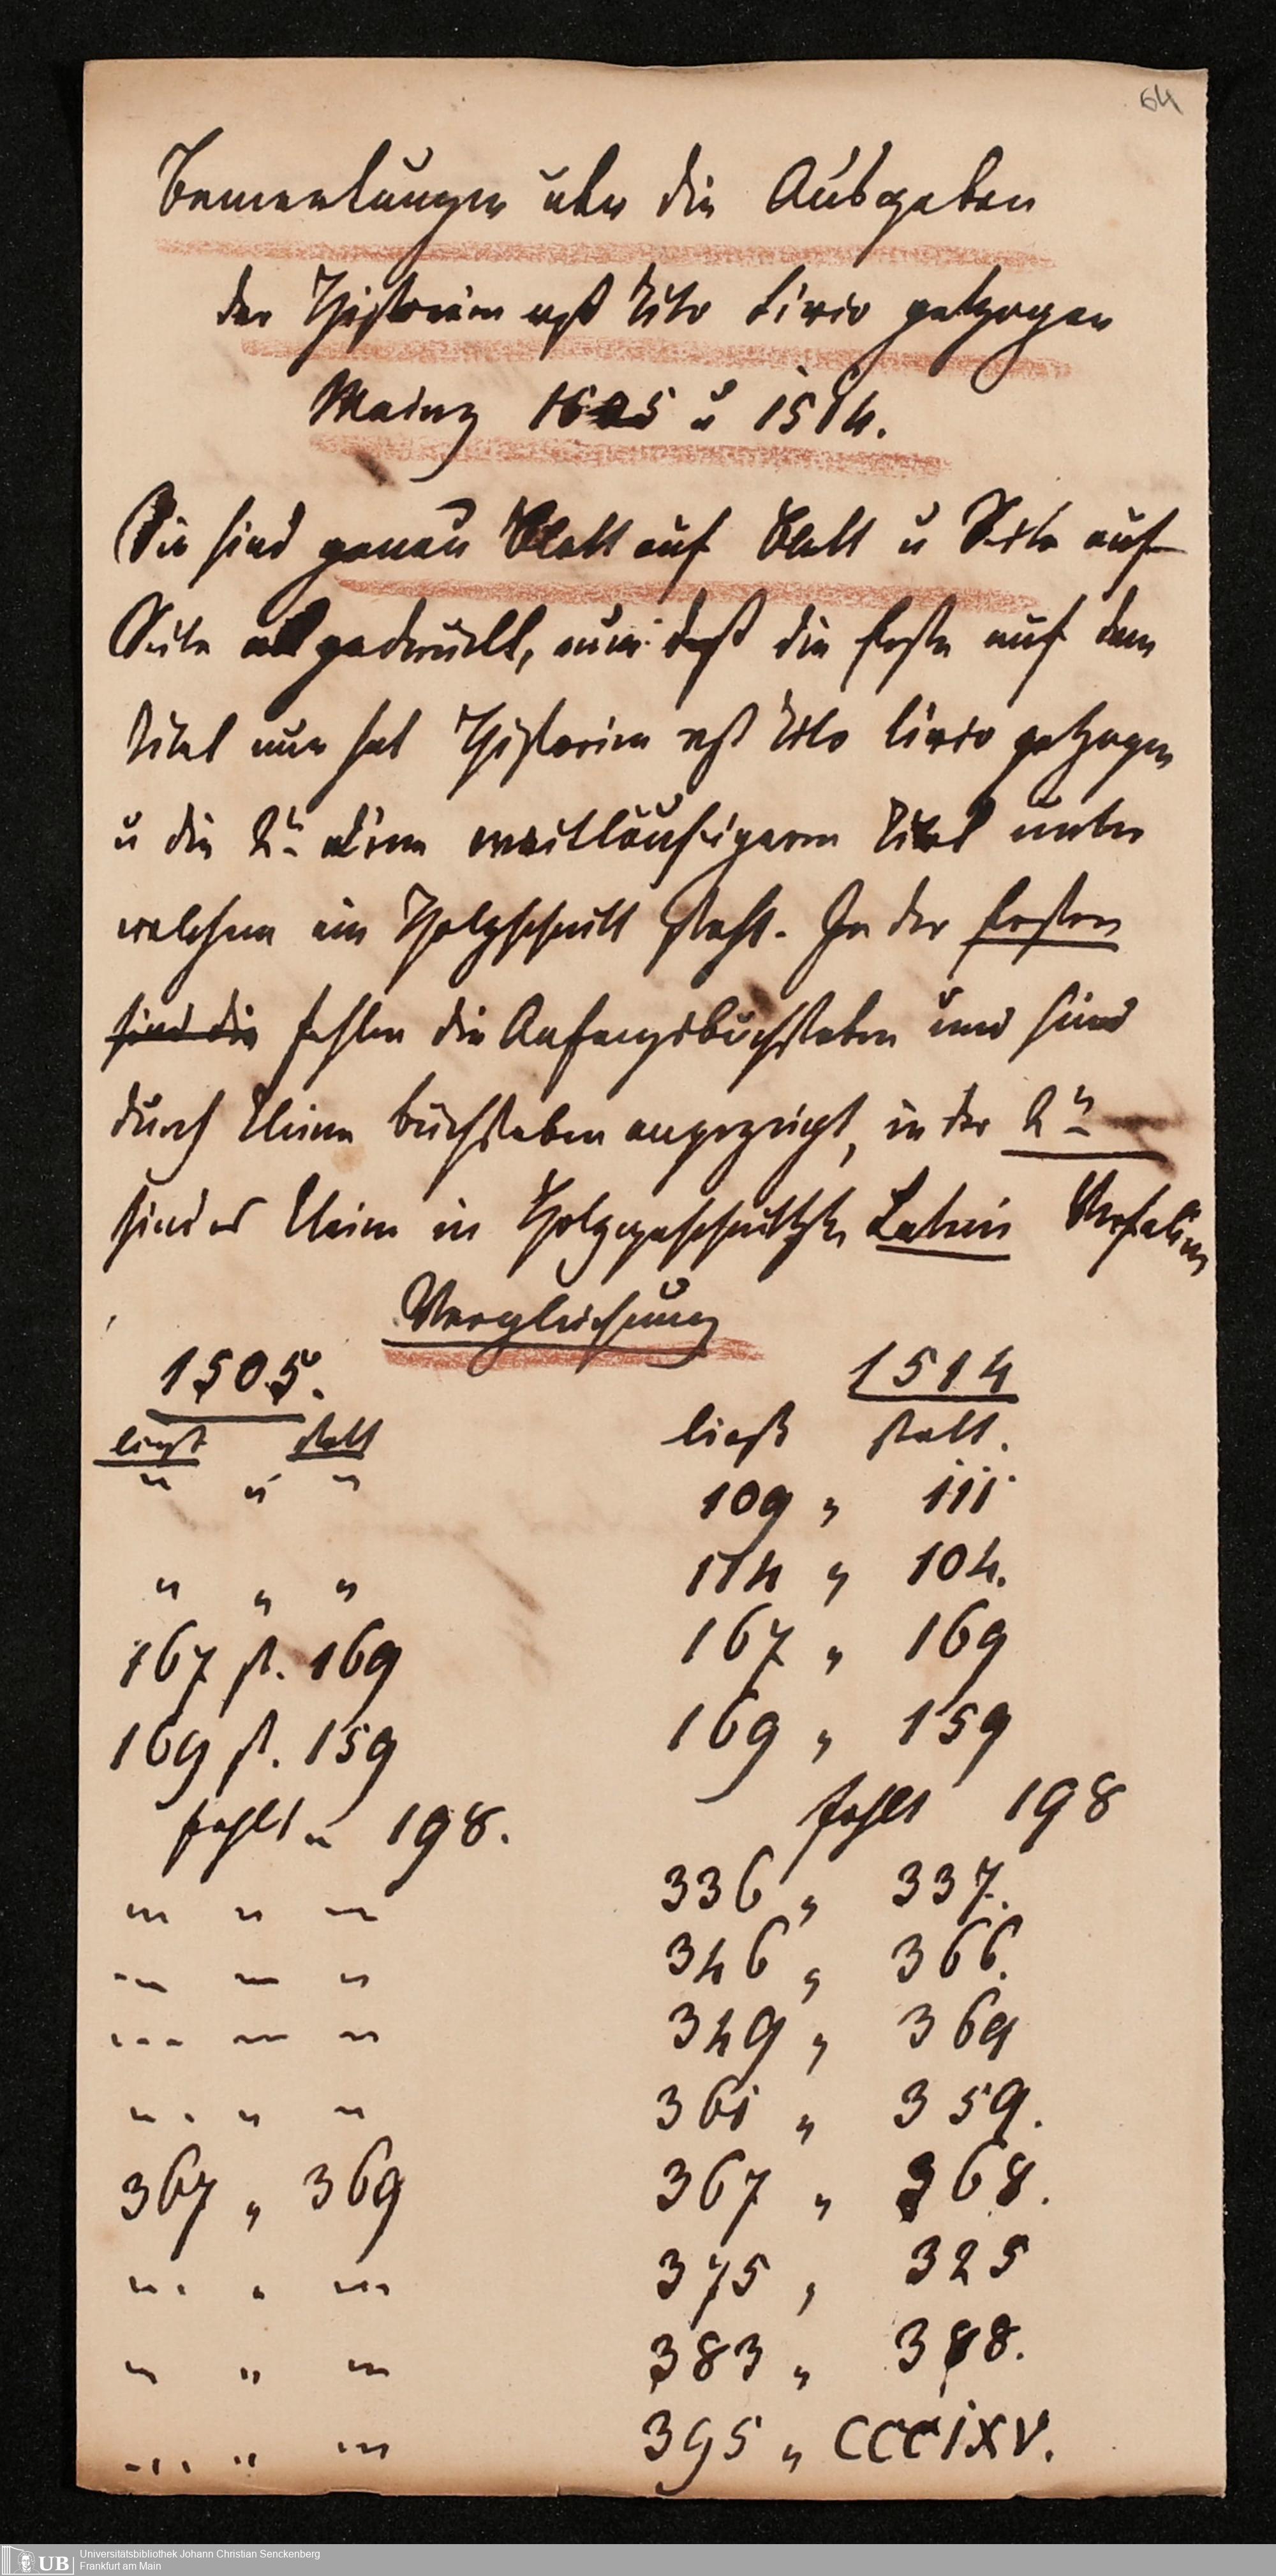 64
Bemerkungen uber die Ausgaben
der Historien auß Tito Livio getzogen
Mainz 1505 u 1514.
Sie sind genau Blatt auf Blatt u Seite auf
Seite abgedruckt, nur daß die Erste auf dem
Titel nur hat Historien auß Tito Livio getzogen
u die 2te einen weitläufigeren Titel unter
welchem ein Holzschnitt steht. In der Ersten
sind die fehlen die Anfangsbuchstaben und sind
durch kleine buchstaben angezeigt, in der 2n
sind es kleine in Holzgeschnittzte Latein Versalien
Vergleichung
1505. 1514
ließt statt ließt statt.
" " " 109 " 111
" " " 114 " 104.
167 st. 169 167 " 169
169 st. 159 169 " 159
fehlt " 198. fehlt 198
" " " 336 " 337.
" " " 346 " 366.
" " " 349 " 369
" " " 361 " 359.
367 " 369 367 " 368.
" " " 375 " 325
" " " 383 " 388.
" " " 395 " CCCIXV.
UB Universitätsbibliothek Johann Christian Senckenberg
Frankfurt am Main